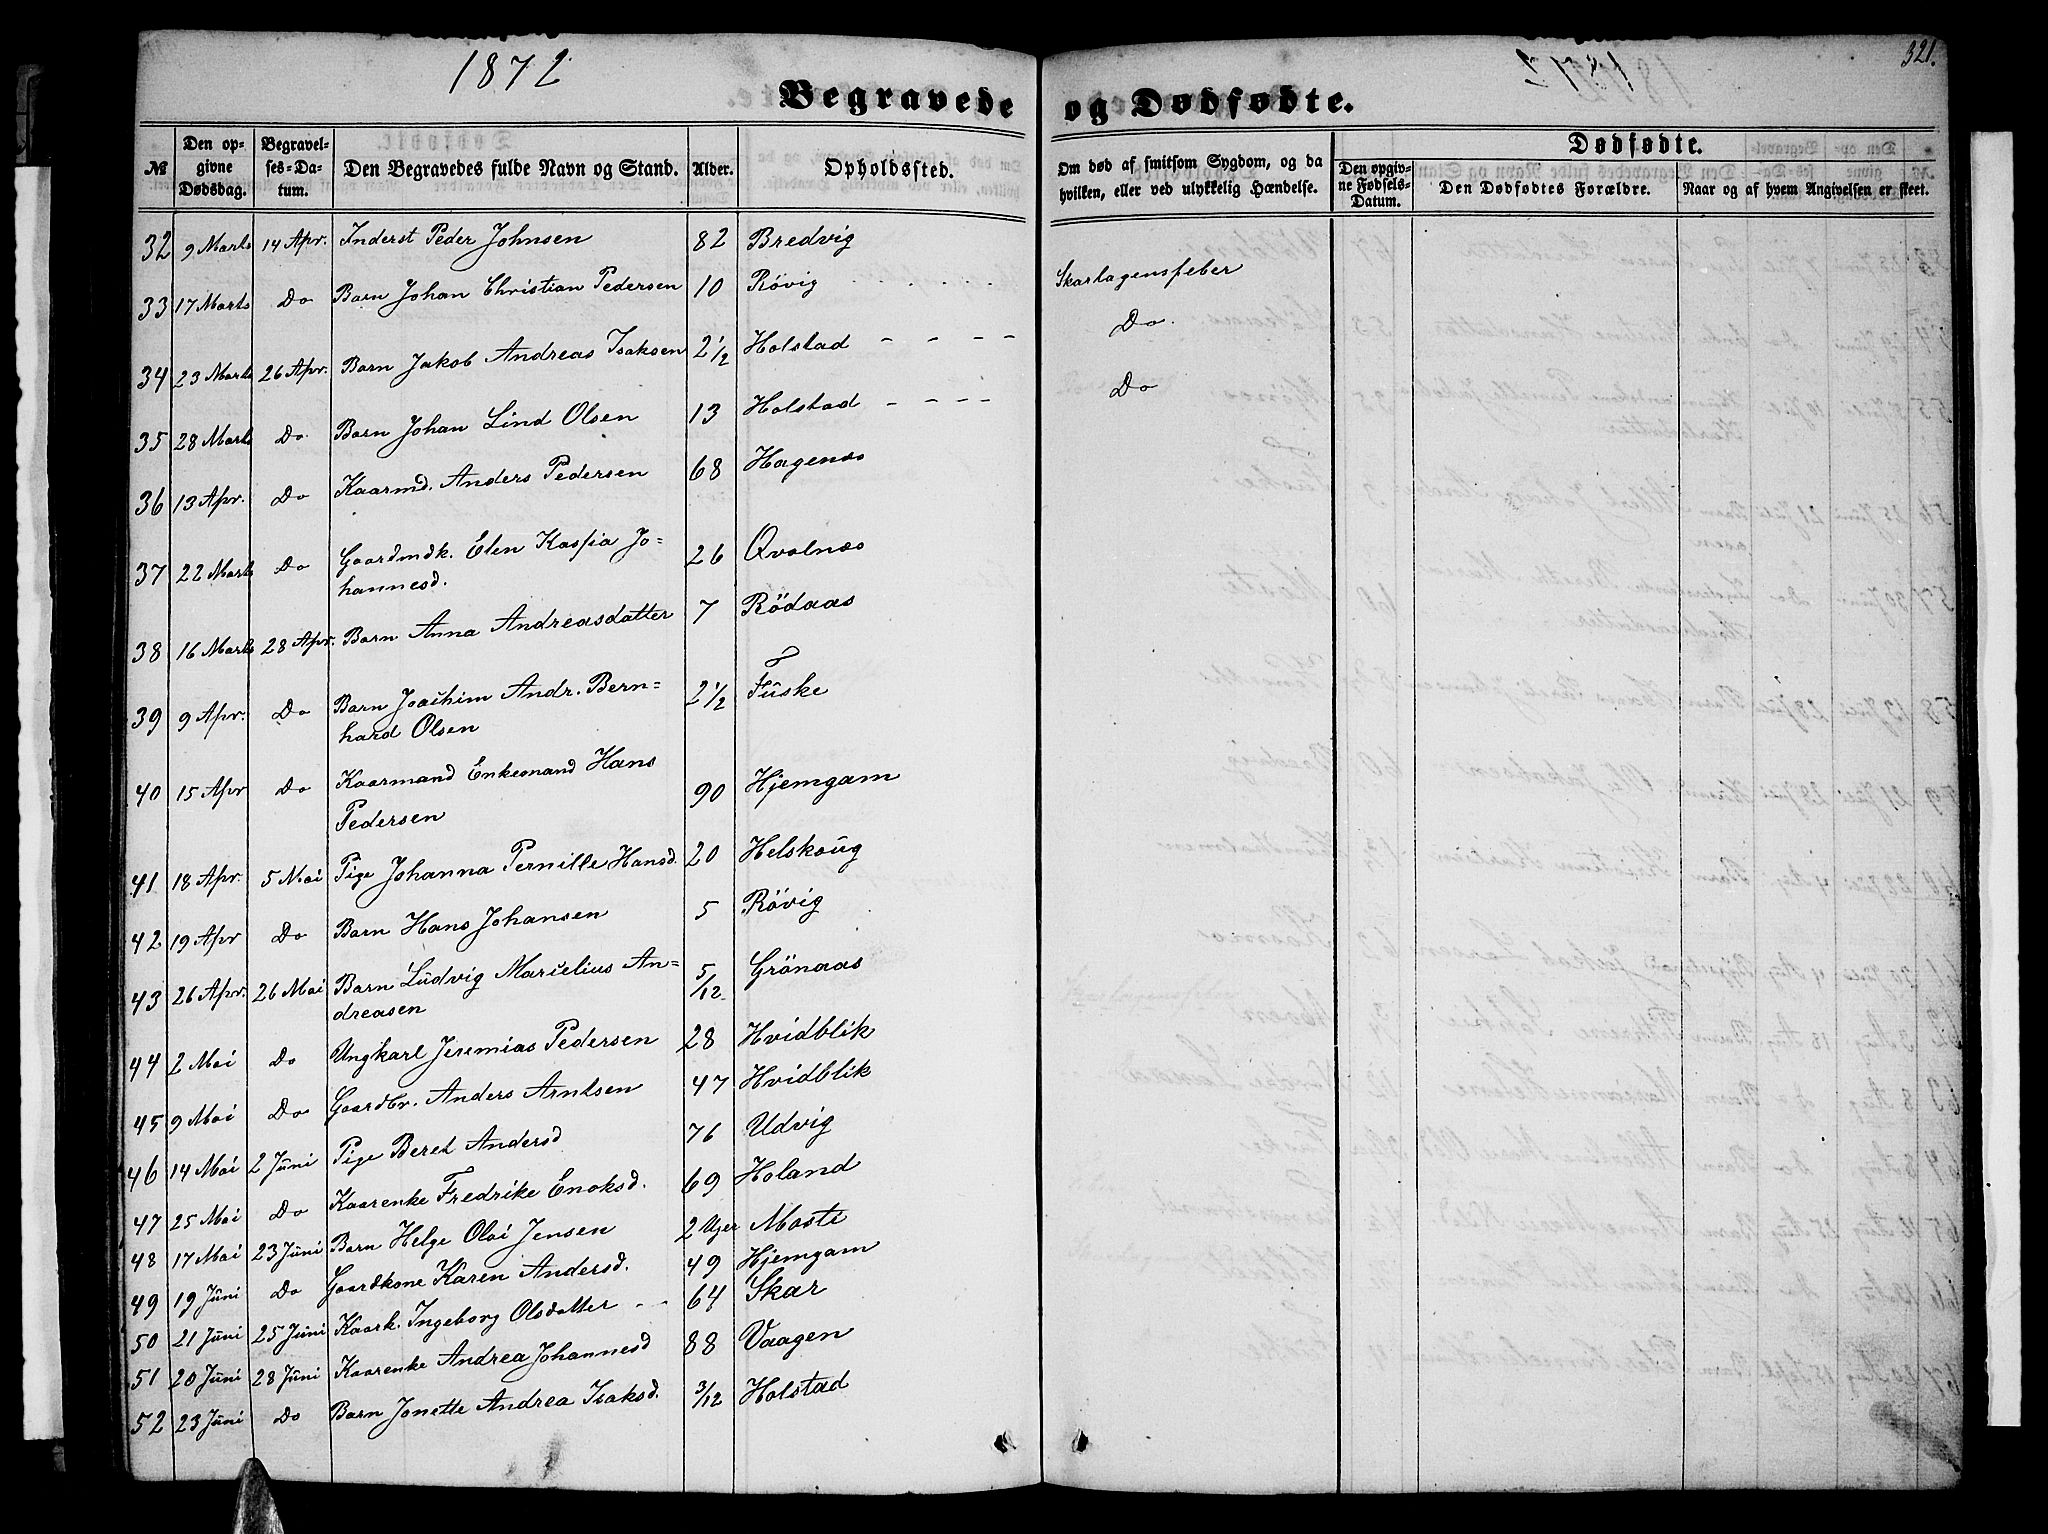 1872
321.
Begravede og Dødfødte.
№
Den opgivne Dødsdag.
Begravelses-Datum.
Den Begravedes fulde Navn og Stand.
Alder.
Opholdssted.
Om død af smitsom Sygdom, og da hvilken, eller ved ulykkelig Hændelse.
Dødfødte.
Den opgivne Fødsels-Datum.
Den Dødfødtes Forældre.
Naar og af hvem Angivelsen er skeet.
32 9 Marts 14 Apr. Inderst Peder Johnsen 82 Bredvig
33 17 Marts Do Barn Johan Christian Pedersen 10 Rövig Skarlagensfeber
34 23 Marts 26 Apr. Barn Jakob Andreas Isaksen 2 1/2 Holstad Do.
35 28 Marts Do Barn Johan Lind Olsen 13 Holstad Do
36 13 Apr. Do Kaarmd. Anders Pedersen 68 Hagenæs
37 22 Marts Do Gaardmdk. Elen Kaspia Jo=
hannesd. 26 Qvalnæs
38 16 Marts 28 Apr. Barn Anna Andreasdatter 7 Rödaas
39 9 Apr. Do Barn Joachim Andr. Bern=
hard Olsen 2 1/2 Fuske
40 15 Apr Do Kaarmand Enkemand Hans
Pedersen 90 Hjemgam
41 18 Apr. 5 Mai Pige Johanna Pernille Hansd. 20 Helskoug
42 19 Apr Do Barn Hans Johansen 5 Rövig
43 26 Apr. 26 Mai Barn Ludvig Marcelius An=
dreasen 5/12 Grönaas
44 2 Mai Do Ungkarl Jeremias Pedersen 28 Hvidblik
45 9 Mai Do Gaardbr. Anders Arntsen 47 Hvidblik
46 14 Mai 2 Juni Pige Beret Andersd 76 Udvig
47 25 Mai Do Kaarenke Fredrike Enoksd. 69 Holand
48 17 Mai 23 Juni Barn Helge Olai Jensen 2 Uger Moste
49 19 Juni Do Gaardkone Karen Andersd. 49 Hjemgam
50 21 Juni 25 Juni Kaark. Ingeborg Olsdatter 64 Skar
51 20 Juni 28 Juni Kaarenke Andrea Johannesd 88 Vaagen
52 23 Juni Do Barn Jonette Andrea Isaksd. 3/12 Holstad